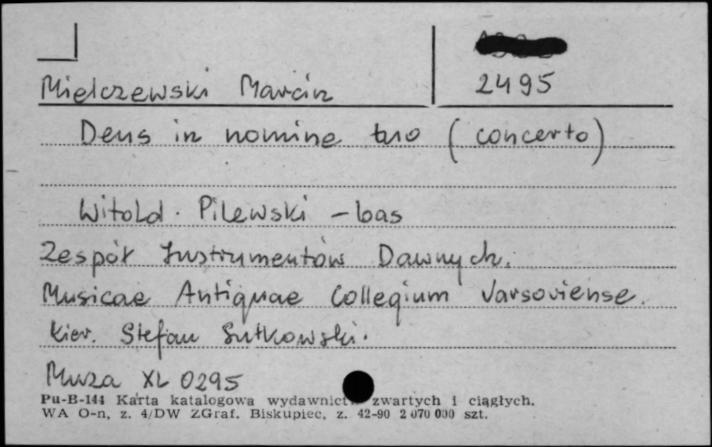 2495
Mielczewski Marcin
Deus in nomine tuo (concerto)
Witold. Pilewski - bas
Zespół Instrumentów Dawnych.
Musicae Antiquae Collegium Varsoviense.
kier. Stefan Sutkowski.
Muza XL 0295
Pu-B-144 Karta katalogowa wydawnictw zwartych i ciągłych.
WA O-n, z. 4/DW ZGraf. Biskupiec, z. 42-90 2 070 000 szt.